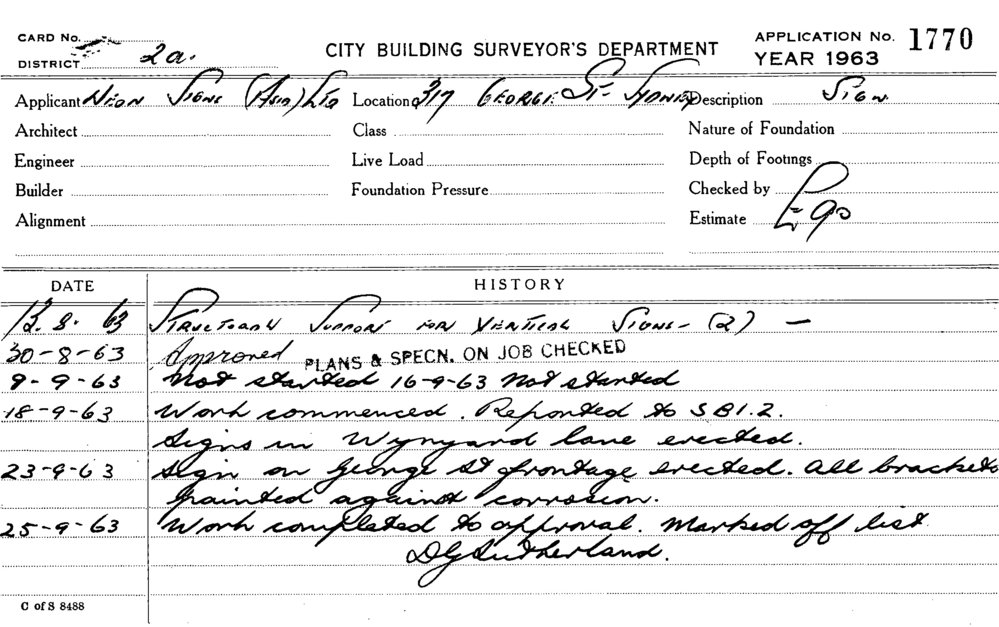 CARD No. CITY BUILDING SURVEYOR'S DEPARTMENT APPLICATION No. 1770
DISTRICT 2a. YEAR 1963
Applicant Neon Signs (Asia) Ltd Location 317 George St. Sydney Description Sign
Architect Class Nature of Foundation
Engineer Live Load Depth of Footings
Builder Foundation Pressure Checked by
Alignment Estimate £90
DATE HISTORY
12.8.63 Structural Support for Vertical Signs - (2) —
30-8-63 Approved PLANS & SPECN. ON JOB CHECKED
9-9-63 Not started 16-9-63 Not started
18-9-63 Work commenced. Reported to SBI.2.
Signs in Wynyard lane erected.
23-9-63 Sign on George St frontage erected. All brackets
painted against corrosion.
25-9-63 Work completed to approval. Marked off list
DG Sutherland.
C of S 8488